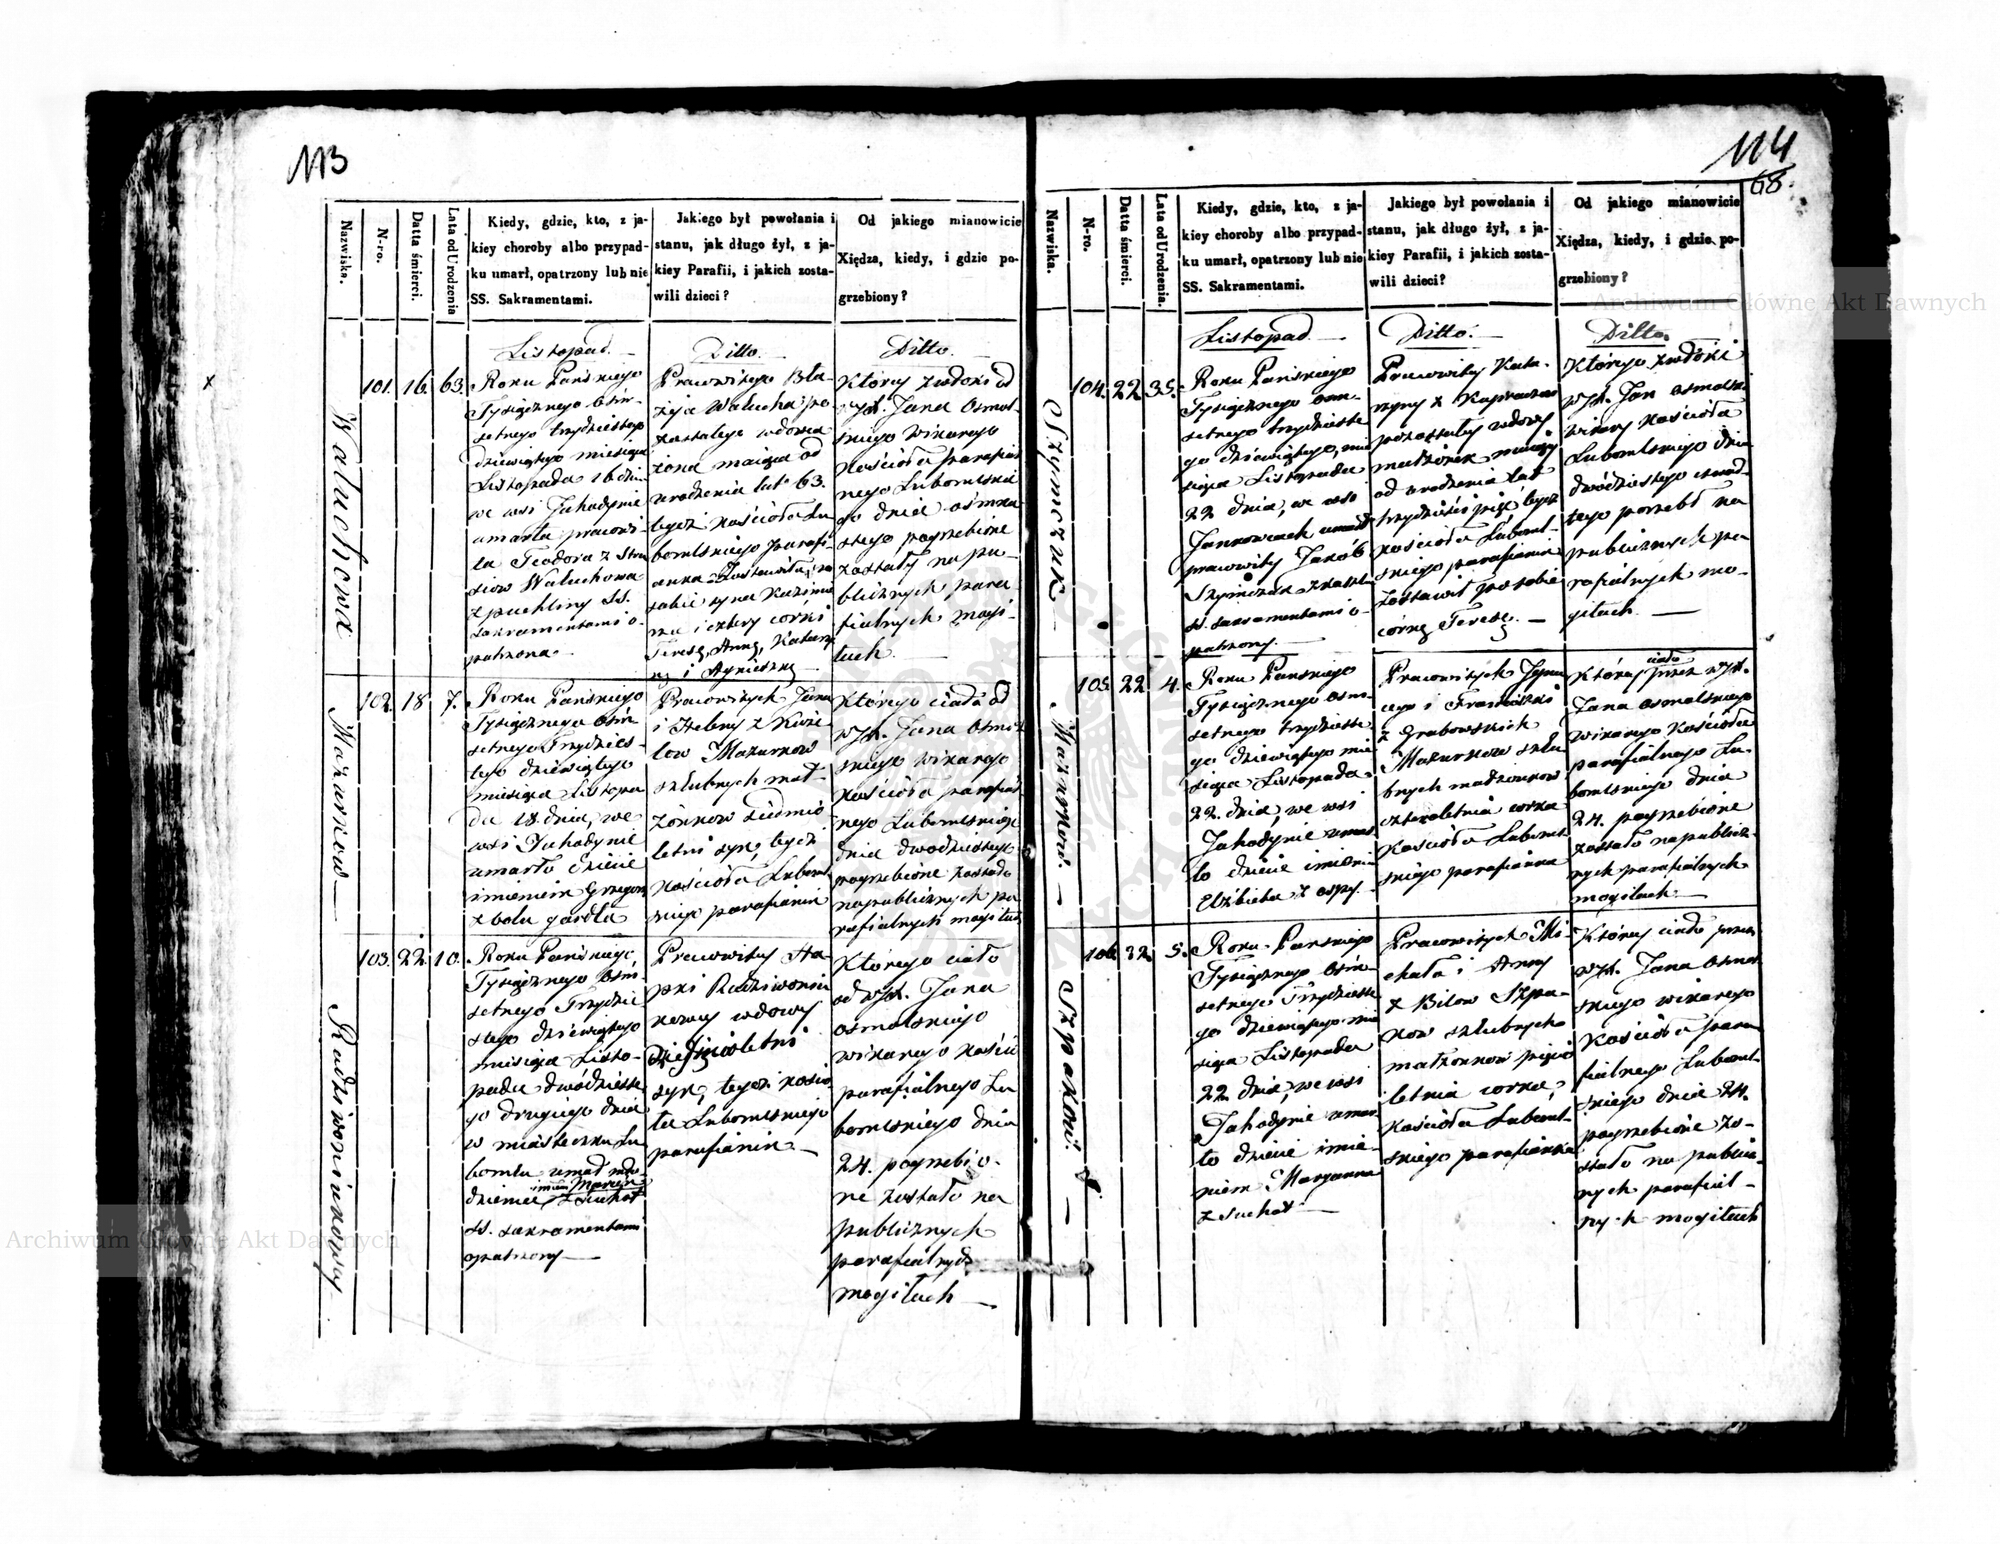 113
Nazwiska.
N-ro.
Datta śmierci.
Lata od Urodzenia
Kiedy, gdzie, kto, z ja-
kiey choroby albo przypad-
ku umarł, opatrzony lub nie
SS. Sakramentami.
Jakiego był powołania i
stanu, jak długo żył, z ja-
kiey Parafii, i jakich zosta-
wili dzieci?
Od jakiego mianowicie
Xiędza, kiedy, i gdzie po-
grzebiony?
Waluchowa
101. 16. 63.
Listopad.
Roku Pańskiego
Tysiącznego Ośm-
setnego trzydziestego
dziewiątego miesiąca
Listopada 16 dnia
we wsi Jahodynie
umarła pracowi-
ta Teodora z
Waluchowa
z puchliny SS.
sakramentami o-
patrzona.
Ditto.
Pracowitego Bła-
żeja Walucha po
zostałego wdowca
żona maiąca od
urodzenia lat 63.
tegoż kościoła Lu
bomlskiego parafi-
anka Zostawiła, po
sobie syna Kazimie
rza i cztery córki
Teresę, Annę, Katarzy
nę i Agnieszkę
Ditto.
Któray zwłoki od
WJX. Jana Osmol-
skiego Wikarego
Kościoła parafial
nego Lubomlskie
go dnia ośmna
stego pogrzebione
zostały na pu-
blicznych para
fialnych mogi-
łach
Mazurków
102. 18. 7.
Roku Pańskiego
Tysiącznego Ośm
setnego Trzydzies-
tego dziewiątego
miesiąca Listopa
da 18 dnia, we
wsi Jahodynie
umarło dziecie
imieniem Grzegorz
z bolu gardła
Pracowitych Jana
i Heleny z
Mazurkow
szlubnych mał-
żonkow siedmio
letni syn, tegoż
Kościoła Luboml
skiego parafianin
Którego ciało od
WJX. Jana Osmol
skiego wikarego
Kościoła parafial
nego Lubomlskiego
dnia dwudziestego
pogrzebione zostało
na publicznych pa
rafialnych mogiłach
Radziwoniukowey
103. 22. 10.
Roku Pańskiego,
Tysiącznego Ośm
setnego Trzydzie
stego dziewiątego
miesiąca Listo-
pada dwódzieste
go drugiego dnia
w miasteczku Lu
bomlu umarł mło
imien Marcin
dzieniec z Suchot
SS. sakramentami
opatrzony
Pracowitey Ha
pki Radziwoniu
kowey wdowy
dziesięcioletni
syn, tegoż kościo
ła Lubomlskiego
parafianin
Którego ciało
od WJX. Jana
Osmolskiego
wikarego kościo
parafialnego Lu
bomlskiego dnia
24. pogrzebio-
ne zostało na
publicznych
parafialnych
mogiłach
114
68.
Nazwiska.
N-ro.
Datta śmierci.
Lata od Urodzenia.
Kiedy, gdzie, kto, z ja-
kiey choroby albo przypad-
ku umarł, opatrzony lub nie
SS. Sakramentami.
Jakiego był powołania i
stanu, jak długo żył, z ja-
kiey Parafii, i jakich zosta-
wili dzieci?
Od jakiego mianowicie
Xiędza, kiedy, i gdzie po-
grzebiony?
Szymczuk
104. 22. 35.
Listopad
Roku Pańskiego
Tysiącznego ośm-
setnego trzydzieste
go dziewiątego, mie
siąca Listopada
22 dnia, we wsi
Jankowcach umarł
pracowity Jakób
Szymczuk z kaszlu
SS. sakramentami o-
patrzony.
Ditto.
Pracowitey Kata-
rzyny z
pozostałey wdowy
małżonek maiący
od urodzenia lat
trzydzieści pięć, tegoż
kościoła Luboml-
skiego parafianin
zostawił po sobie
córkę Teresę.
Ditto.
Którego zwłoki
WJX. Jan Osmolski
Wikary Kościoła
Lubomlskiego dnia
dwódziestego czwar
tego pogrzebł na
publicznych pa
rafialnych mo-
giłach.
Mazurków.
105. 22. 4.
Roku Pańskiego
Tysiącznego Ośm-
setnego trzydzieste
go dziewiątego mie
siąca Listopada
22. dnia, we wsi
Jahodynie umar
ło dziecie imieniem
Elżbieta z ospy.
Pracowitych
i Franciszki
z Grabowskich
Mazurkow szlu
bnych małżonkow
czteroletnia corka
Kościoła Luboml
skiego parafianka
ciało
Którey przez WJX.
Jana Osmolskiego
wikarego Kościoła
parafialnego Lu-
bomlskiego dnia
24. pogrzebione
zostało na publicz-
nych parafialnych
mogiłach
Szpaków.
106. 22. 5.
Roku Pańskiego
Tysiącznego Ośm-
setnego Trzydzieste
go dziewiątego mie
siąca Listopada
22 dnia, we wsi
Jahodynie umar
ło dziecie imie-
niem Maryanna
z suchot
Pracowitych Mi-
chała i Anny
z Bilow Szpa-
kow szlubnych
małżonkow pięcio
letnia corka,
Kościoła Luboml-
skiego parafianka
Którey ciało przez
WJX. Jana Osmol
skiego wikarego
Kościoła para
fialnego Luboml-
skiego dnia 24.
pogrzebione zo-
stało na publicz-
nych parafial-
nych mogiłach
Archiwum Główne Akt Dawnych
Archiwum Główne Akt Dawnych